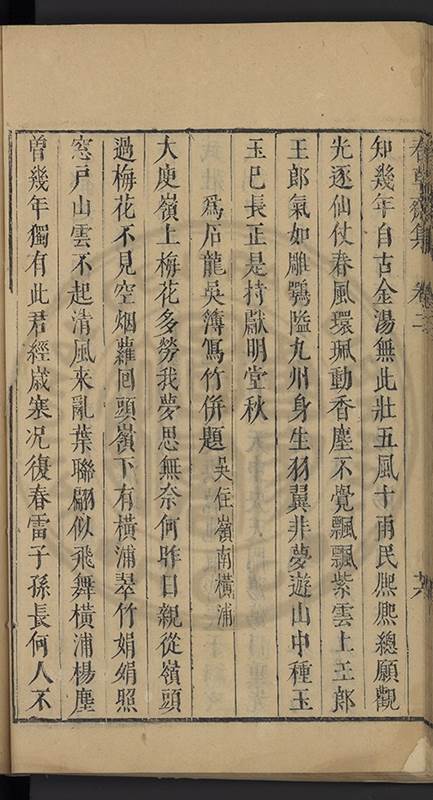 春草齋集 卷二 六
知幾年自古金湯無此壯五風十雨民熈熈總願觀
光逐仙仗春風環珮動香塵不覺飄飄紫雲上王郎
王郎氣如鵰鶚隘九州身生羽翼非夢遊山中種玉
玉巳長正是持獻明堂秋
爲石龍吳簿寫竹併題 吳住嶺南橫浦
大庾嶺上梅花多勞我夢思無奈何昨日親從嶺頭
過梅花不見空烟蘿回頭嶺下有橫浦翠竹娟娟照
窓戸山雲不起清風來亂葉聯翩似飛舞橫浦楊塵
曽幾年獨有此君經歲寒况復春雷子孫長何人不